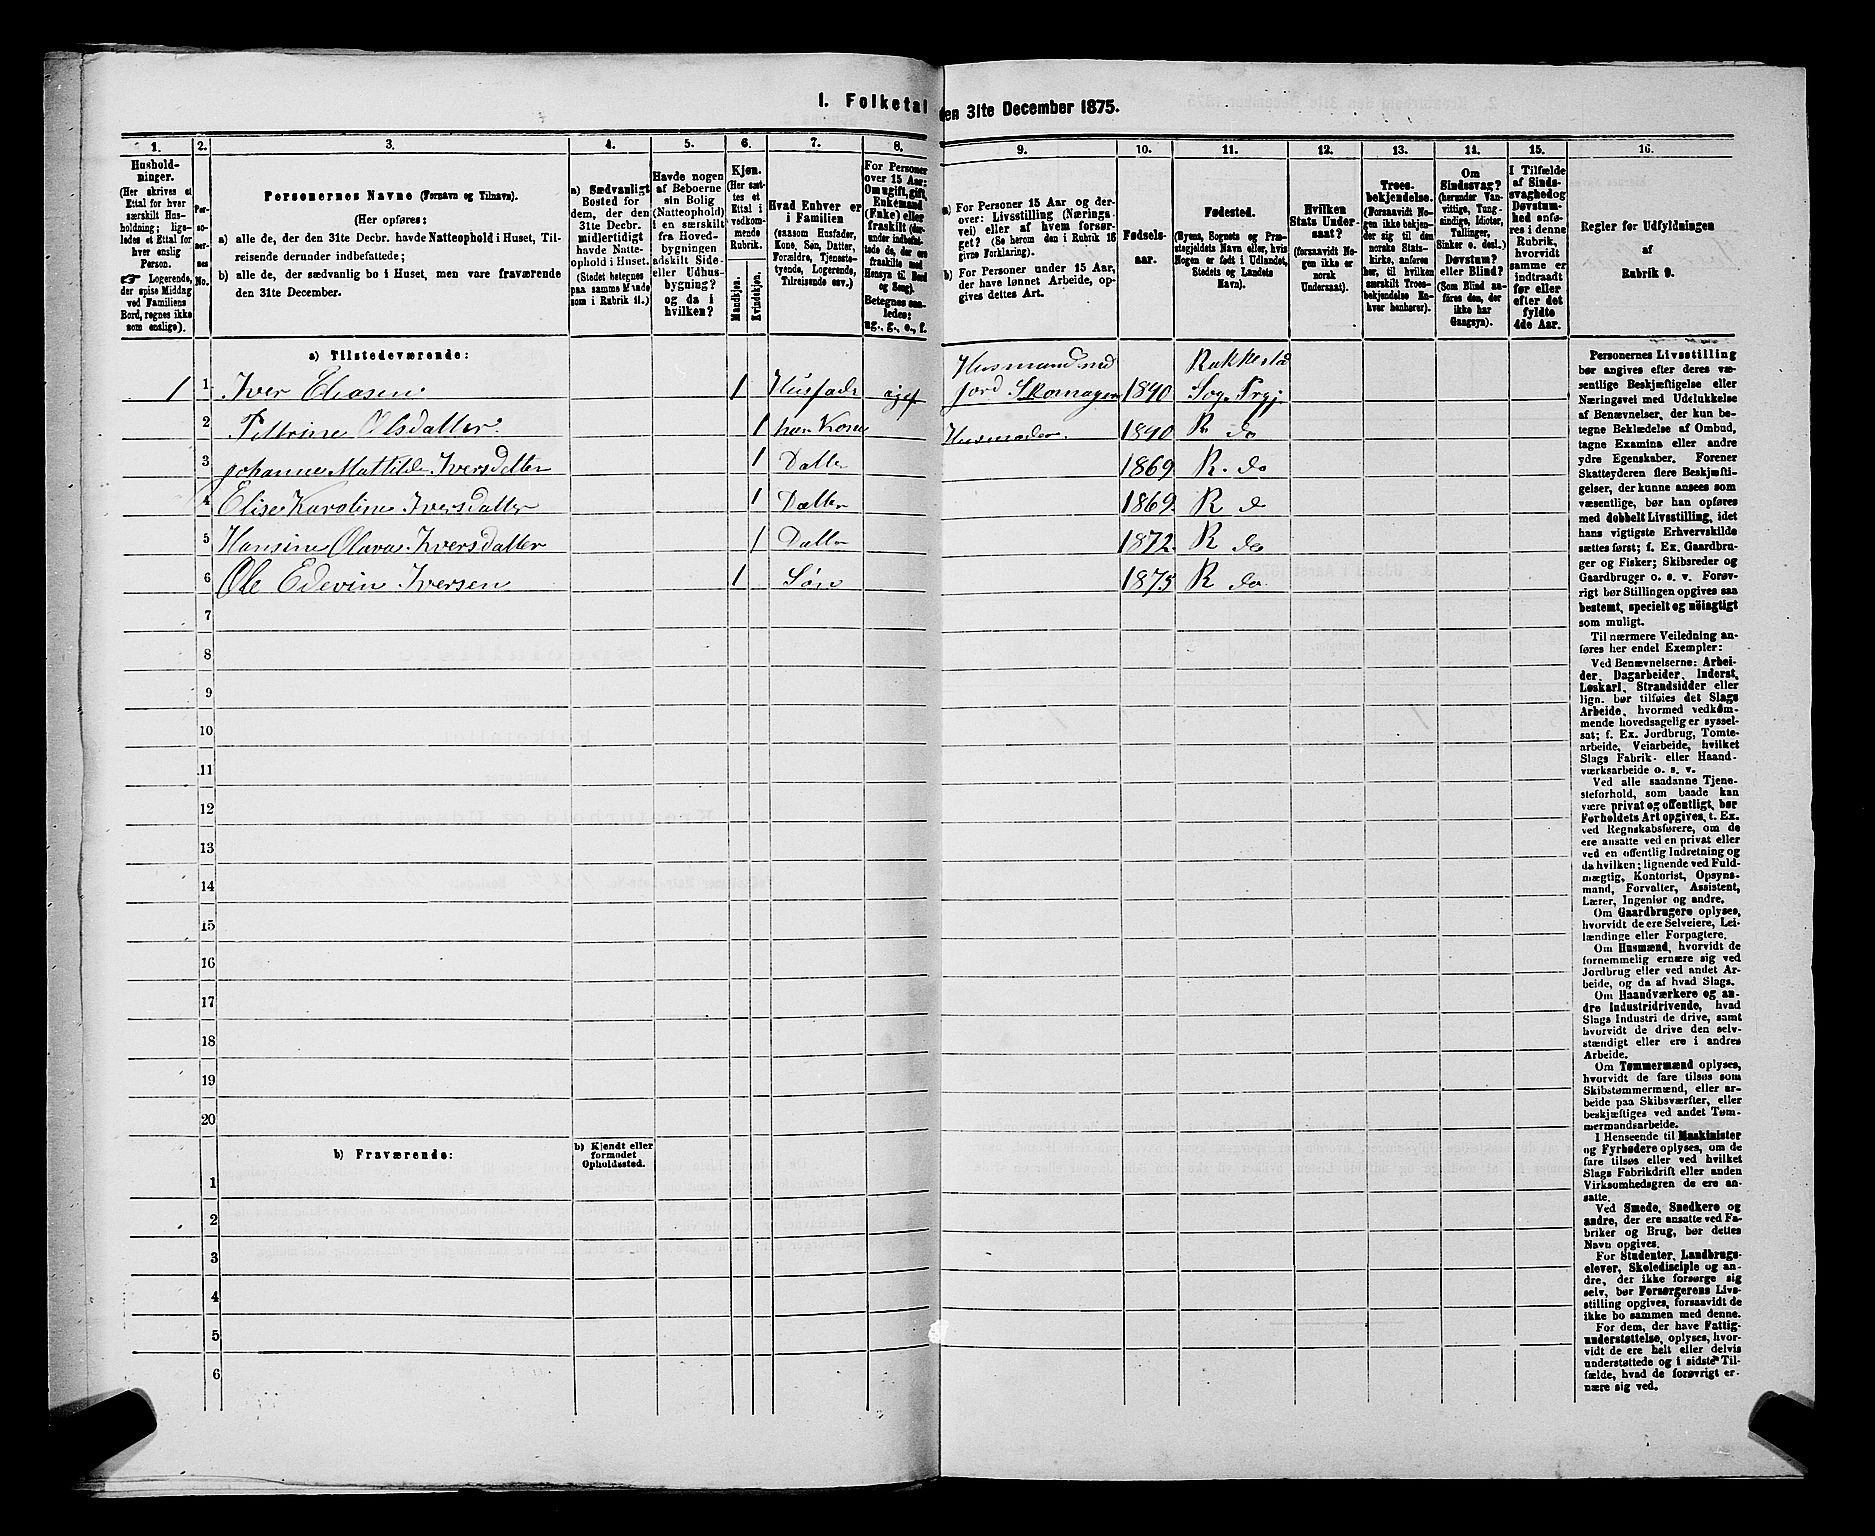 I. Folketal
den 31te December 1875.
1.
2.
3.
4.
5.
6.
7.
8.
9.
10.
11.
12.
13.
14.
15.
16.
Hushold-
ninger.
(Her skrives et
Ettal for hver
særskilt Hus-
holdning; lige-
ledes et Ettal for
hver enslig
Person.
☞ Logerende,
der spise Middag
ved Familiens
Bord, regnes ikke
som enslige).
Per-
so-
ner-
nes
No.
Personernes Navne (Fornavn og Tilnavn).
(Her opføres:
a) alle de, der den 31te Decbr. havde Natteophold i Huset, Til-
reisende derunder indbefattede;
b) alle de, der sædvanlig bo i Huset, men vare fraværende
den 31te December.
a) Sædvanligt
Bosted for
dem, der den
31te Decbr.
midlertidigt
havde Natte-
ophold i Huset.
(Stedet betegnes
paa samme Maade
som i Rubrik 11.)
Havde nogen
af Beboerne
sin Bolig
(Natteophold)
i en særskilt
fra Hoved-
bygningen
adskilt Side-
eller Udhus-
bygning?
og da i
hvilken?
Kjøn.
(Her sæt-
tes et
Ettal i
vedkom-
mende
Rubrik.
Mandkjøn.
Kvindekjøn.
Hvad Enhver er
i Familien
(saasom Husfader,
Kone, Søn, Datter,
Forældre, Tjeneste-
tyende, Logerende,
Tilreisende osv.)
For Personer
over 15 Aar:
Om ugift, gift,
Enkemand
(Enke) eller
fraskilt (der-
under indbefat-
tede de, der ere
fraskilte med
Hensyn til Bord
og Seng).
Betegnes saa-
ledes:
ug., g., e., f.
a) For Personer 15 Aar og der-
over: Livsstilling (Nærings-
vei) eller af hvem forsør-
get? (Se herom den i Rubrik 16
givne Forklaring).
b) For Personer under 15 Aar,
der have lønnet Arbeide, op-
gives dettes Art.
Fødsels-
aar.
Fødested.
(Byens, Sognets og Præ-
stegjeldets Navn eller, hvis
Nogen er født i Udlandet,
Stedets og Landets
Navn).
Hvilken
Stats Under-
saat?
(forsaavidt No-
gen ikke er
norsk
Undersaat).
Troes-
bekjendelse.
(Forsaavidt No-
gen ikke bekjen-
der sig til den
norske Stats-
kirke, anføres
her, til hvilken
særskilt Troes-
bekjendelse En-
hver henhører).
Om
Sindssvag?
(herunder Van-
vittige, Tung-
sindige, Idioter,
Tullinger,
Sinker o. desl.)
Døvstum?
eller Blind?
(Som Blind an-
føres den, der
ikke har
Gangsyn).
I Tilfælde
af Sinds-
svaghed og
Døvstum-
hed anfø-
res i denne
Rubrik,
hvorvidt
samme er
indtraadt
før eller
efter det
fyldte
4de Aar.
Regler for Udfyldningen
af
Rubrik 9.
a) Tilstedeværende:
1 1 Iver Eliasen 1 Husfader gift Husmand med jord Skomager 1840 Rakkestad Sog. Prgj.
2 Pettrine Olsdatter 1 hans Kone Husmoder. 1840 R do
3 Johanne Mattilde Iversdatter 1 Datter 1869 R. do
4 Elise Karoline Iversdatter 1 Datter 1869 R do
5 Hansine Olava Iversdatter 1 Datter 1872. R do
6 Ole Edevin Iversen 1 Søn 1875 R do
7
8
9
10
11
12
13
14
15
16
17
18
19
20
b) Fraværende:
b) Kjendt eller
formodet
Opholdssted.
1
2
3
4
5
6
Personernes Livsstilling
bør angives efter deres væ-
sentlige Beskjæftigelse eller
Næringsvei med Udelukkelse
af Benævnelser, der kun be-
tegne Beklædelse af Ombud,
tagne Examina eller andre
ydre Egenskaber. Forener
Skatteyderen flere Beskjæfti-
gelser, der kunne ansees som
væsentlige, bør han opføres
med dobbelt Livsstilling, idet
hans vigtigste Erhvervskilde
sættes først; f. Ex. Gaardbru-
ger og Fisker; Skibsreder og
Gaardbruger o. s. v. Forøv-
rigt bør Stillingen opgives saa
bestemt, specielt og nöiagtigt
som muligt.
Til nærmere Veiledning an-
føres her endel Exempler:
Ved Benævnelserne: Arbei-
der, Dagarbeider, Inderst,
Løskarl, Strandsidder eller
lign. bør tilføies det Slags
Arbeide, hvormed vedkom-
mende hovedsagelig er syssel-
sat; f. Ex. Jordbrug, Tomte-
arbeide, Veiarbeide, hvilket
Slags Fabrik- eller Haand-
værksarbeide o. s. v.
Ved alle saadanne Tjene-
steforhold, som baade kan
være privat og offentligt, bør
Forholdets Art opgives, t. Ex.
ved Regnskabsførere, om de
ere ansatte ved en privat eller
ved en offentlig Indretning og
da hvilken; lignende ved Fuld-
mægtig, Kontorist, Opsyns-
mand, Forvalter, Assistent,
Lærer, Ingeniør og andre.
Om Gaardbrugere oplyses,
hvorvidt de ere Selveiere, Lei-
lændinge eller Forpagtere.
Om Husmænd, hvorvidt de
fornemmelig ernære sig ved
Jordbrug eller ved andet Ar-
beide, og da af hvad Slags.
Om Haandværkere og an-
dre Industridrivende, hvad
Slags Industri de drive, samt
hvorvidt de drive den selv-
stændigt eller ere i andres
Arbeide.
Om Tømmermænd oplyses,
hvorvidt de fare tilsøs som
Skibstømmermænd, eller ar-
beide paa Skibsværfter, eller
beskjæftiges ved andet Tøm-
mermandsarbeide.
I Henseende til Maskinister
og Fyrbødere oplyses, om de
fare tilsøs eller ved hvilket
Slags Fabrikdrift eller anden
Virksomhedsgren de ere an-
satte.
Ved Smede, Snedkere og
andre, der ere ansatte ved Fa-
briker og Brug, bør dettes
Navn opgives.
For Studenter, Landbrugs-
elever, Skoledisciple og an-
dre, der ikke forsørge sig
selv, bør Forsørgerens Livs-
stilling opgives, forsaavidt de
ikke bo sammen med denne.
For dem, der have Fattig-
understøttelse, oplyses, hvor-
vidt de ere helt eller delvis
understøttede og i sidste Til-
fælde, hvad de forøvrigt er-
nære sig ved.